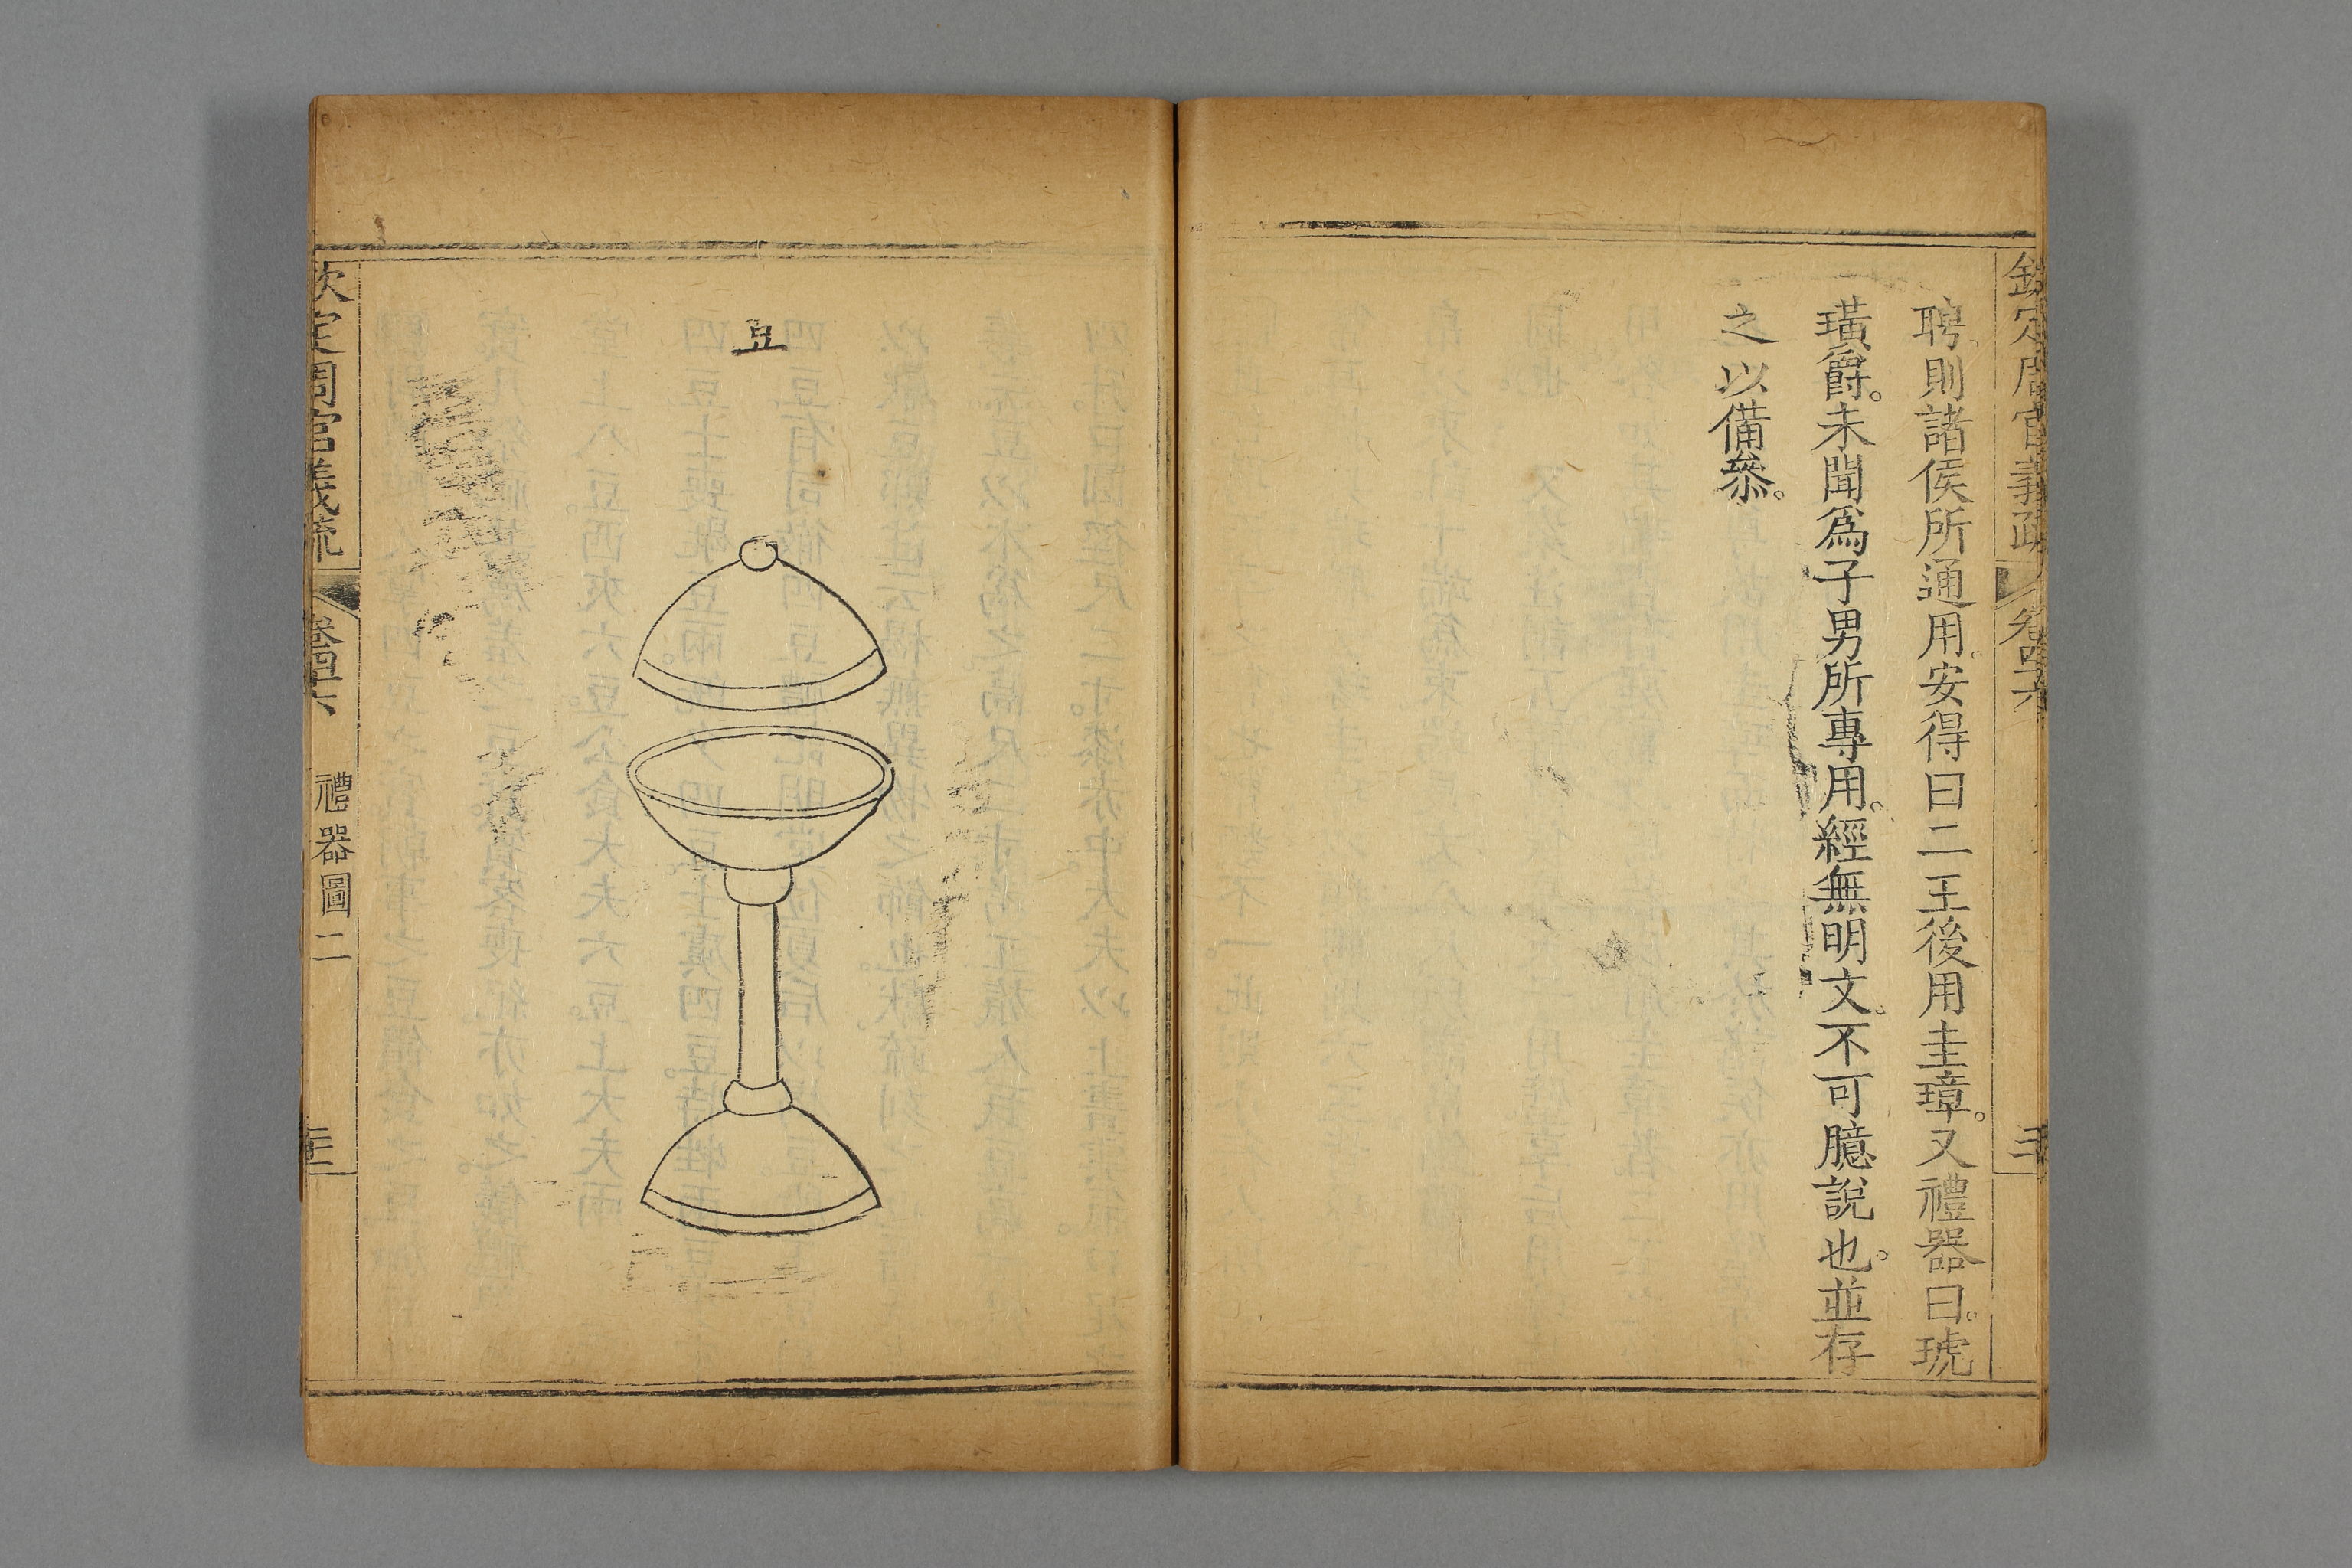 欽定周官義疏 卷四十六
聘。則諸侯所通用。安得曰二王後用圭璋。又禮器曰。琥
璜爵。未聞爲子男所專用。經無明文。不可臆說也。並存
之以備參。
豆
欽定周官義疏 卷四十六 禮器圖二